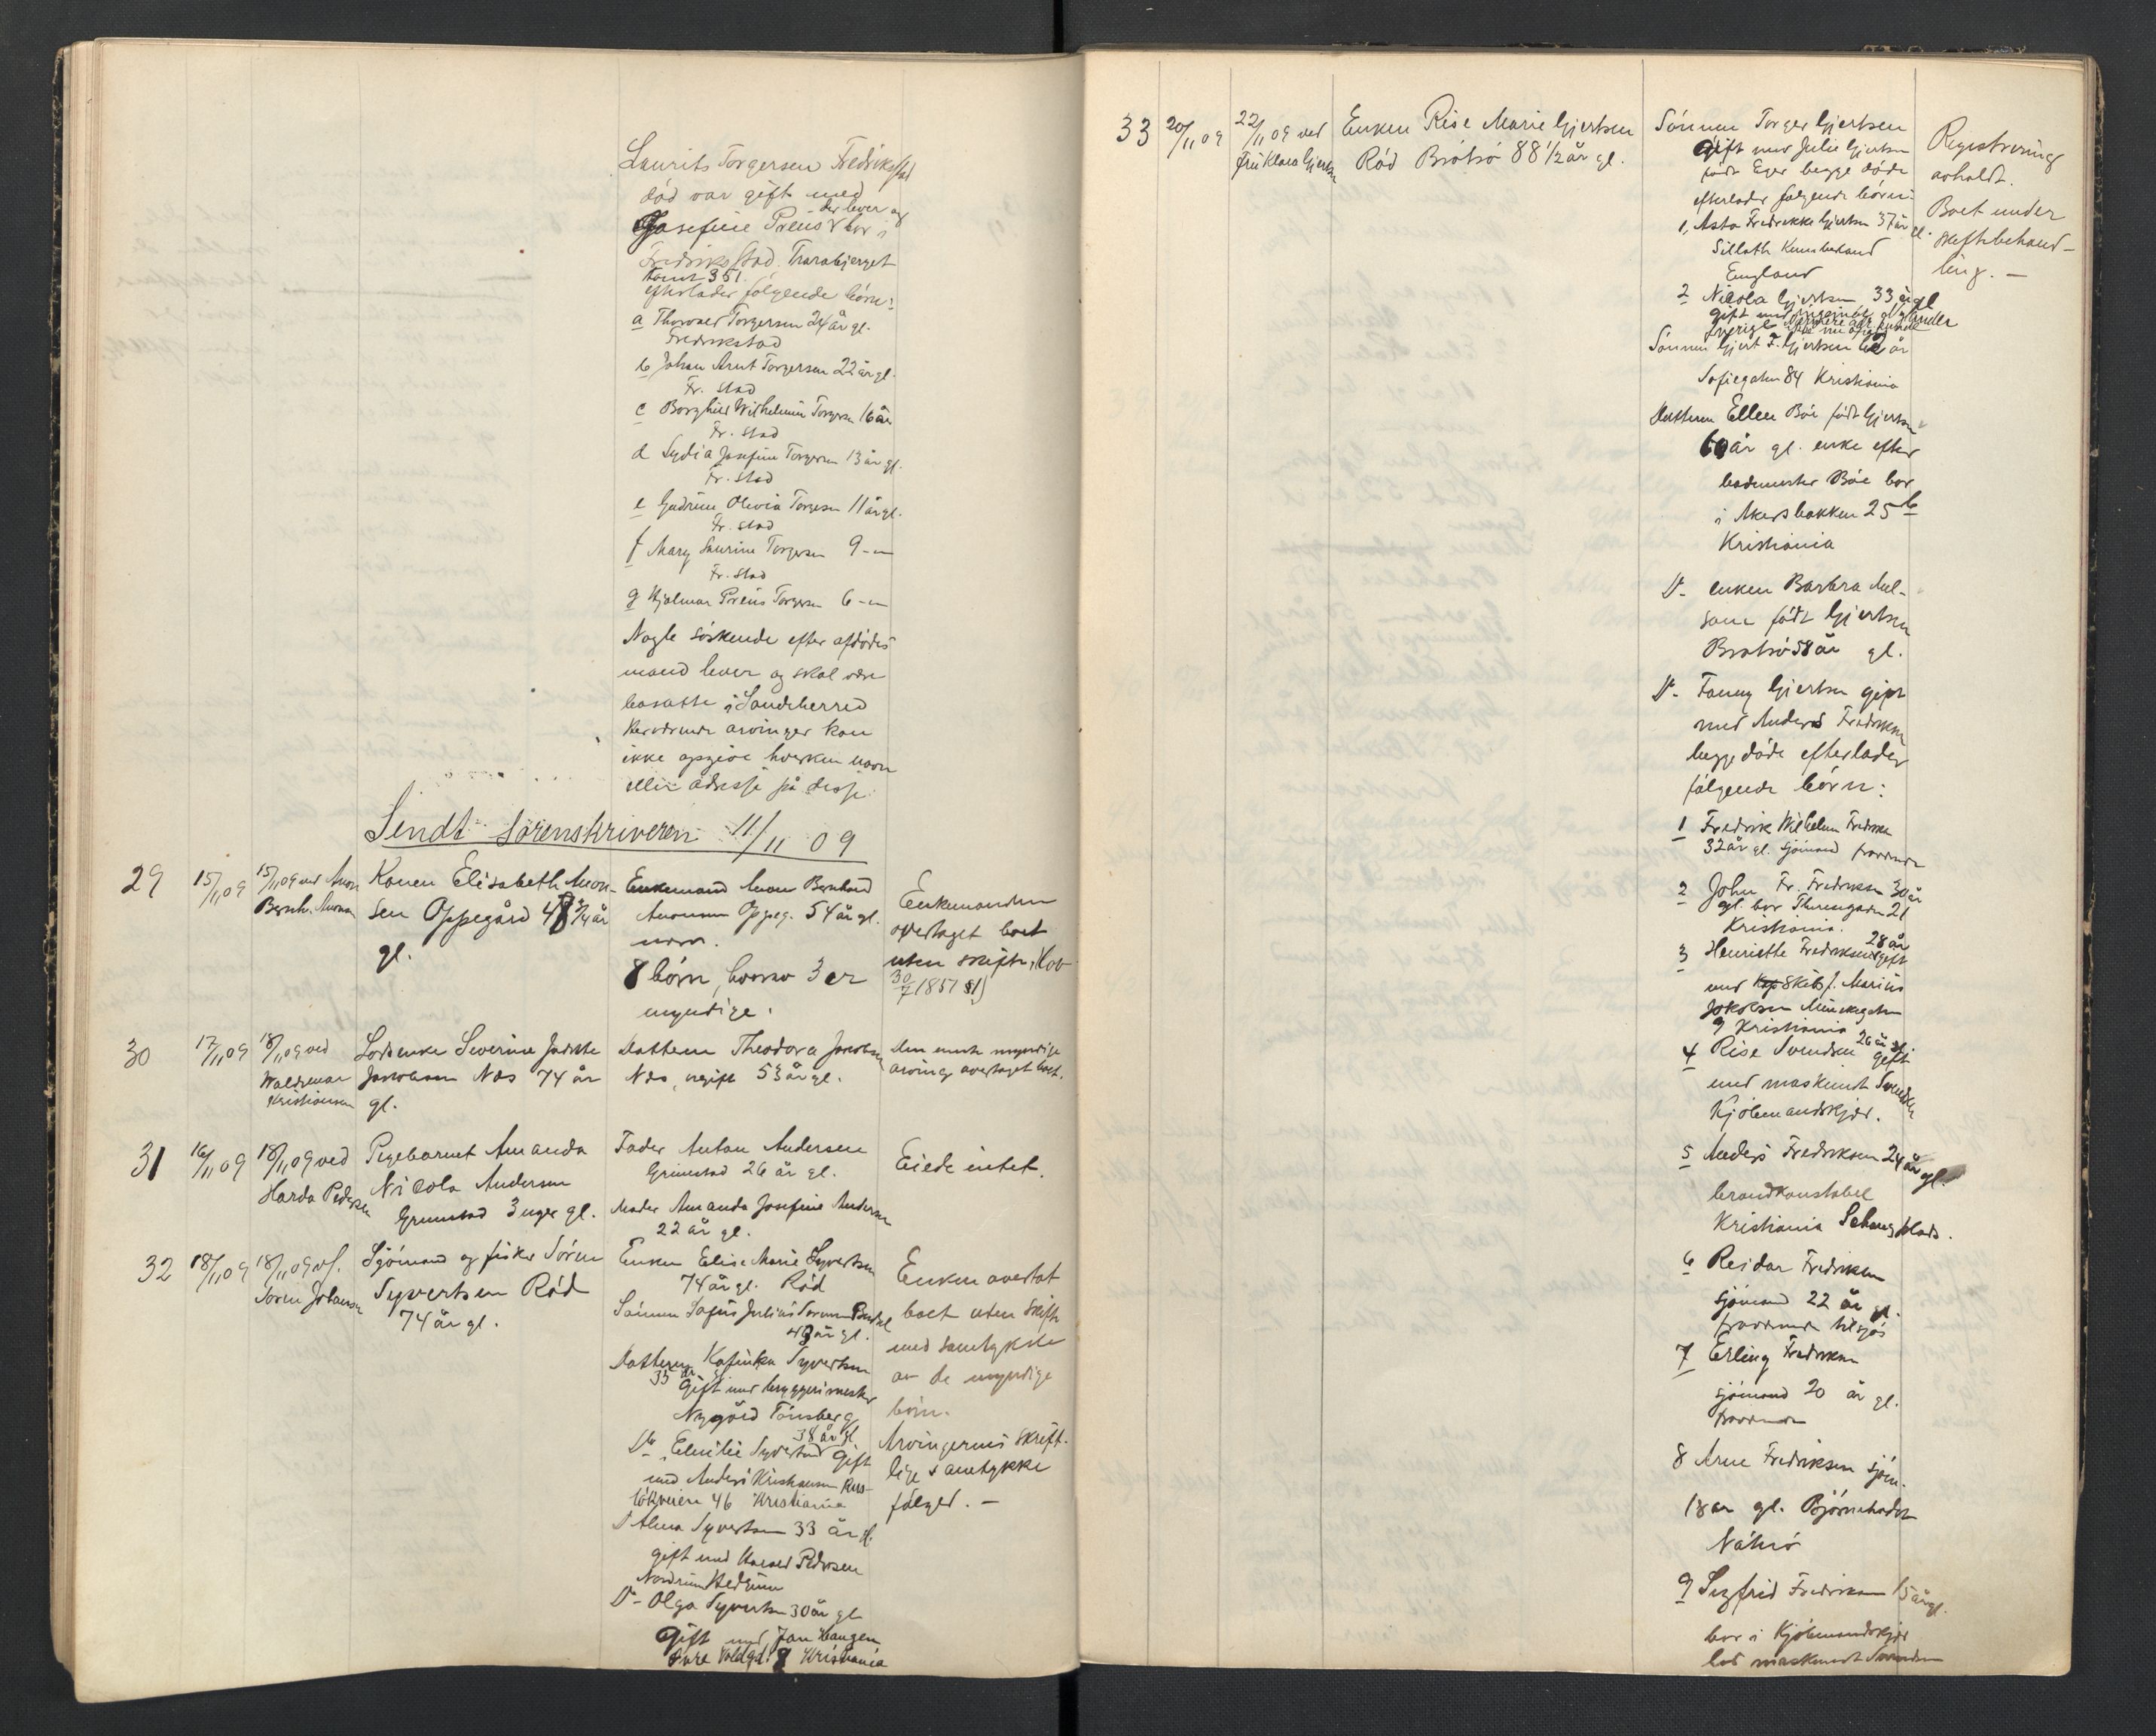 Laurits Torgersen Fredriksstad
død var gift med
Josefine Preus der lever og bor i
Fredriksstad. Trarabjerget
Tomt 351.
efterlader følgende børn:
a Thorvald Torgersen 24 år gl.
Fredrikstad
b Johan Arnt Torgersen 22 år gl.
Fr. stad
c Borghild Wilhelmine Torgersen 16 år
Fr. stad
d Lydia Josefine Torgersen 13 år gl.
Fr. stad
e Gudrun Olivia Torgersen 11 år gl.
Fr. stad
f Mary Laurine Torgersen 9 - "
Fr. stad
g Hjalmar Preus Torgersen 6 - "
Nogle søskende efter afdødes
mand lever og skal være
bosatte i Sandeherred
Herværende arvinger kan
ikke opgive hverken navn
eller adresse på disse.
Sendt Sorenskriveren 11/11 09
29 15/11 09 15/11 09 ved Aron
Bernh. Aronsen
Konen Elisabeth Aron-
sen Oppegård 48 3/4 år
gl.
Enkemand Aron Bernhard
Aronsen Oppeg. 54 år gl.
8 børn, hvorav 3 er
myndige.
Enkemanden
overtaget boet
uten skifte, (Lov
30/7 1851 §1)
30 17/11 09 18/11 09 ved
Waldemar
Kristiansen
Lodsenke Severine
Jakobsen Næs 74 år
gl.
Datteren Theodora Jakobsen
Næs, ugift 53 år gl.
Den eneste myndige
arving overtaget boet.
31 16/11 09 18/11 09 ved
Harda Pedersen
Pigebarnet Amanda
Nicola Andersen
Grimstad 3 uger gl.
Fader Anton Andersen
Grimstad 26 år gl.
Moder Amanda Josefine Andersen
22 år gl.
Eiede intet.
32 18/11 09 18/11 09 v/.
Søren Johansen
Sjømand og fisker Søren
Syvertsen Rød
74 år gl.
Enken Elise Marie Syvertsen
74 år gl. Rød
Sønnen Sofus Julius Sørensen
43 år gl.
Datteren Kafinka Syvertsen
35 år gl.
Gift med bryggerimester
Nygård Tønsberg
38 år gl
Do Emilie Syvertsen gift
med Anders Kristiansen Rus-
løkveien 46 Kristiania
D Alma Syvertsen 33 år gl.
gift med Harald Pedersen
Nordrum Hedrum
Do- Olga Syvertsen 30 år gl
Gift med Jan Haugen
Øvre Voldgd. 8 Kristiania
Enken overtat
boet uten skifte
med samtykke
av de myndige
børn.
Arvingernes skrift-
lige samtykke
følger. -
33 20/11 09 22/11 09 ved
Frk Klara Gjertsen
Enken Rise Marie Gjertsen
Rød Brøtsø 88 1/2 år gl.
Sønnen Torger Gjertsen
Gift med Julie Gjertsen
født Eger begge døde
efterlader følgende børn:
1, Asta Fredrikke Gjertsen 37 år gl.
Silloth Kumberland
England
2 Nicola Gjertsen 33 år gl
gift med
Sverige
Sønnen Gjert F. Gjertsen 62 år
Sofiegaten 84 Kristiania
Datteren Ellen Bøe født Gjertsen
60 år gl. enke efter
bademester Bøe bor
i Akersbakken 25 b
Kristiania
D- enken Barbra Aul-
sane født Gjertsen
Brøtsø 58 år gl.
D- Fanny Gjertsen gift
med Anders Fredriksen
begge døde efterlader
følgende børn:
1 Fredrik Wilhelm Fredriksen
32 år gl. sjømand
2 John Fr. Fredriksen 30 år
gl. bor Thurengaden 21
Kristiania.
3 Henriette Fredriksen 28 år gift
med Skibsf. Marius
Jakobsen Munckegaten
9 Kristiania
4 Rise Svendsen 26 år gl gift
med maskinist Svendsen
Kjøbmandskjær.
5 Anders Fredriksen 24 år gl.
brandkonstabel
Kristiania Sehesteds plads.
6 Reidar Fredriksen
sjømand 22 år gl.
tilsjøs
7 Erling Fredriksen
sjømand 20 år gl.
8 Arne Fredriksen sjøm.
18 år gl.
Nøtterø
9 Sigfrid Fredriksen 15 år gl.
bor i Kjøbmandskjær
hos maskinist Svendsen
Registrering
avholdt.
Boet under
skiftebehand-
ling. -